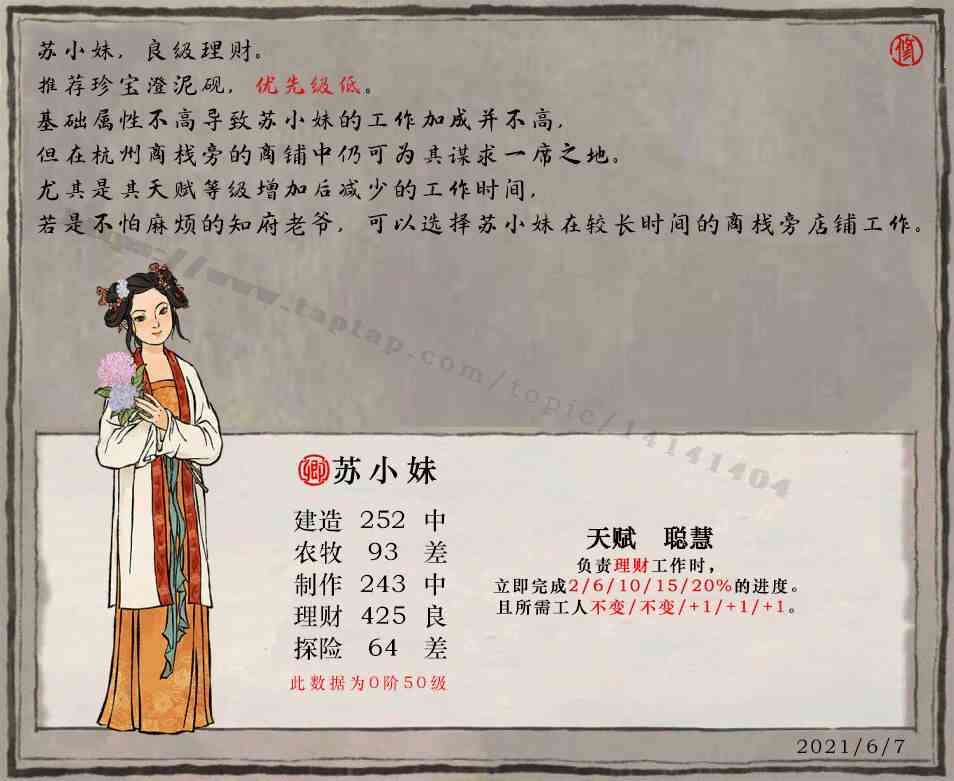 苏小妹，良级理财。
修
推荐珍宝澄泥砚，优先级低。
基础属性不高导致苏小妹的工作加成并不高，
但在杭州商栈旁的商铺中仍可为其谋求一席之地。
尤其是其天赋等级增加后减少的工作时间，
若是不怕麻烦的知府老爷，可以选择苏小妹在较长时间的商栈旁店铺工作。
https://www.taptap.com/topic/14141404
卿 苏小妹
建造 252 中
农牧 93 差
制作 243 中
理财 425 良
探险 64 差
此数据为0阶50级
天赋 聪慧
负责理财工作时，
立即完成2/6/10/15/20%的进度。
且所需工人不变/不变/+1/+1/+1。
2021/6/7